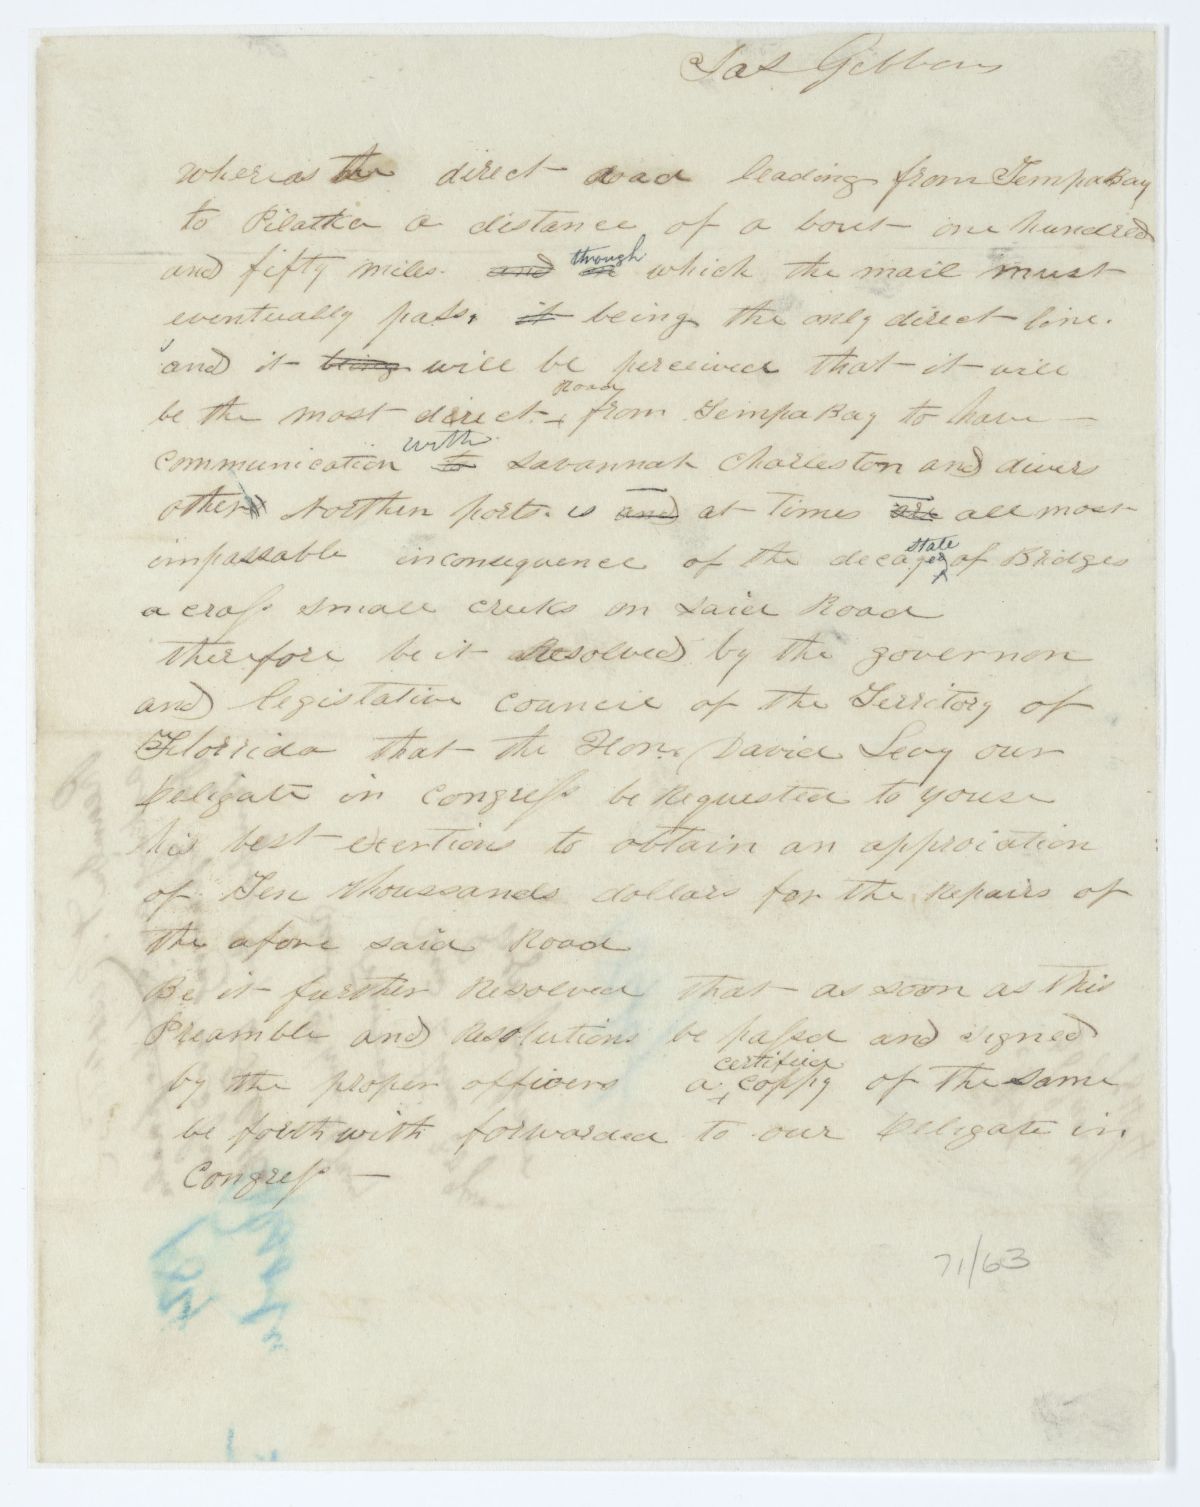 Jas Gibbons
whereas the direct road leading from TempaBay
to Pilatka a distance of a bout one hundred
and fifty miles. and in through which the mail must
eventually pass, it being the only direct line.
and it being will be perceived that it will
be the most direct Road from TempaBay to have
communication to with Savannah Charleston and divers
other Northen ports. is and at times are all most
impassable inconsequence of the decayed state of Bridges
a cross small creeks on said Road
therefore be it Resolved by the governon
and legistative council of the Territory of
Florrida that the Hon. David Levy our
Deligate in congress be Requested to youse
his best exertions to obtain an approiation
of Ten thoussands dollars for the Repairs of
the afore said Road
Be it further Resolved that as soon as this
Preamble and Resolutions be passd and signed
by the proper officers a certified coppy of the same
be forth with forwarded to our Deligate in
Congress —
71/63